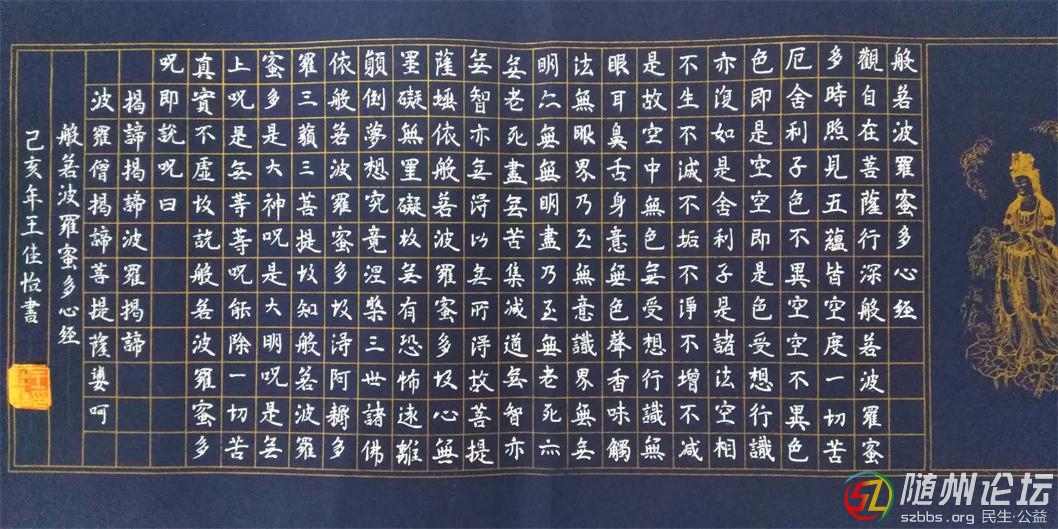 般若波羅蜜多心經
觀自在菩薩行深般若波羅蜜
多時照見五蘊皆空度一切苦
厄舍利子色不異空空不異色
色即是空空即是色受想行識
亦復如是舍利子是諸法空相
不生不滅不垢不淨不增不減
是故空中無色無受想行識無
眼耳鼻舌身意無色聲香味觸
法無眼界乃至無意識界無無
明亦無無明盡乃至無老死亦
無老死盡無苦集滅道無智亦
無智亦無得以無所得故菩提
薩埵依般若波羅蜜多故心無
罣礙無罣礙故無有恐怖遠離
顛倒夢想究竟涅槃三世諸佛
依般若波羅蜜多故得阿耨多
羅三藐三菩提故知般若波羅
蜜多是大神呪是大明呪是無
上呪是無等等呪能除一切苦
真實不虛故說般若波羅蜜多
呪即說呪曰
揭諦揭諦波羅揭諦
波羅僧揭諦菩提薩婆呵
般若波羅蜜多心經
己亥年王佳怡書
随州论坛
szbbs.org 民生·公益